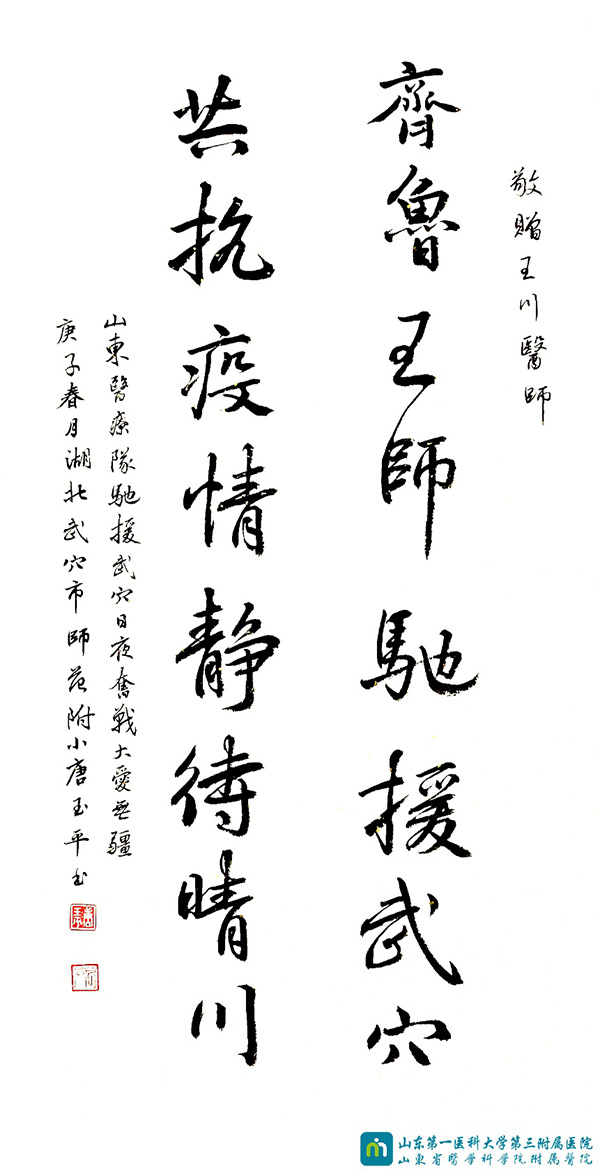 敬贈王川醫師
齊魯王師馳援武穴
共抗疫情静待晴川
山東醫療隊馳援武穴日夜奮戰大愛無疆
庚子春月湖北武穴市師范附小唐玉平书
山东第一医科大学第三附属医院
山東省醫學科學院附属醫院